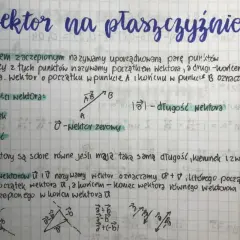 ektor na płaszczyźnie
em zaczepionym nazywamy uporządkowaną parę punktów
y z tych punktów nazywamy początkiem wektora, a drugi - końcem
a. Wektor o początku w punkcie A i końcu w punkcie B oznacz
ści wektora:
AB
B
A
|v| - długość wektora
0 - wektor zerowy
tory są sobie równe jeśli mają taką samą długość, kierunek i zw
wektorów u i v nazywamy wektor oznaczamy u + v, którego począ
oczątek wektora u, a końcem - koniec wektora równego wektorowi
epionego w końcu wektora u